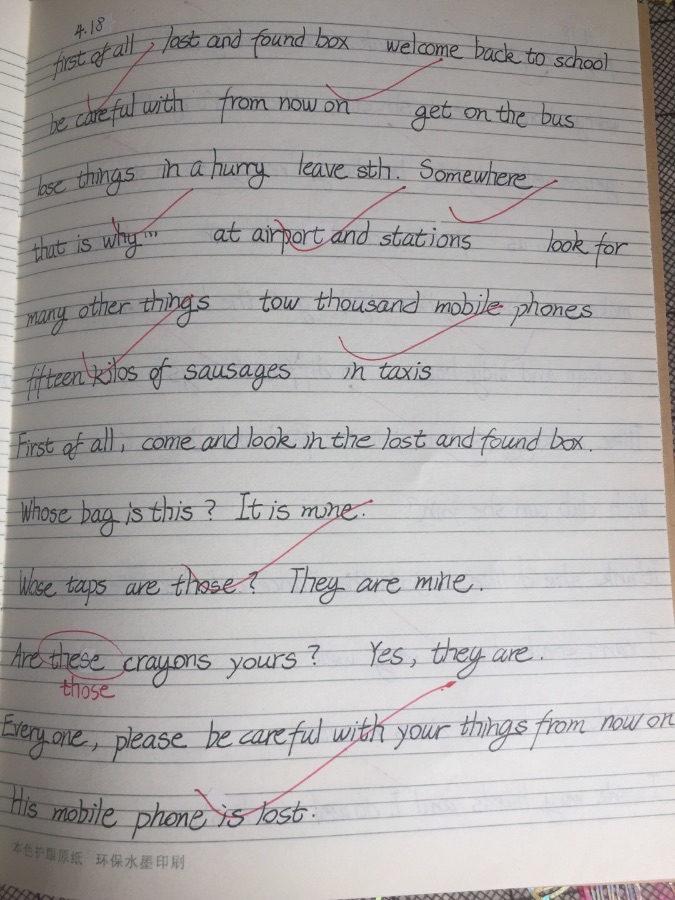 4.18
first of all, lost and found box welcome back to school
be careful with from now on get on the bus
lose things in a hurry leave sth. Somewhere
that is why... at airport and stations look for
many other things tow thousand mobile phones
fifteen kilos of sausages in taxis
First of all, come and look in the lost and found box.
Whose bag is this? It is mine.
Wose taps are those? They are mine.
Are these crayons yours? Yes, they are.
those
Everyone, please be careful with your things from now on
His mobile phone is lost.
本色护眼原纸 环保水墨印刷